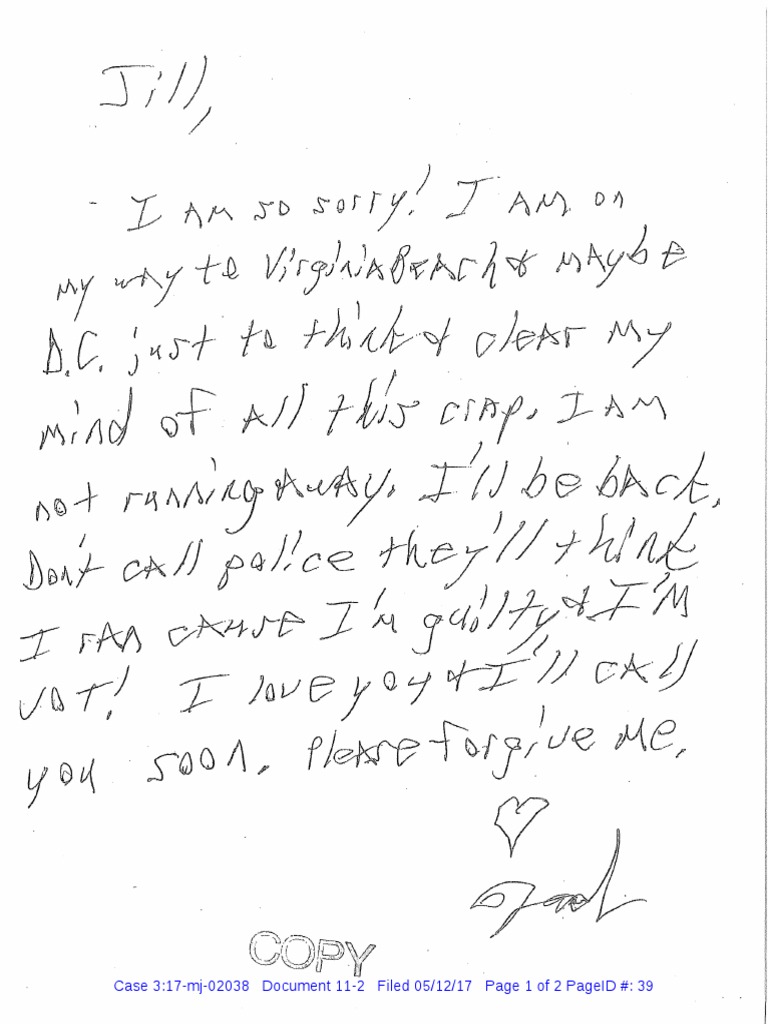 Jill,
- I AM so sorry! I AM on
my way to Virginia Beach & maybe
D.C. just to think & clear my
mind of all this crap. I AM
not running away. I'll be back.
Don't call police they'll think
I ran cause I'm guilty & I'M
NOT! I love you & I'll call
you soon. Please forgive me.
♡
COPY
Case 3:17-mj-02038 Document 11-2 Filed 05/12/17 Page 1 of 2 PageID #: 39